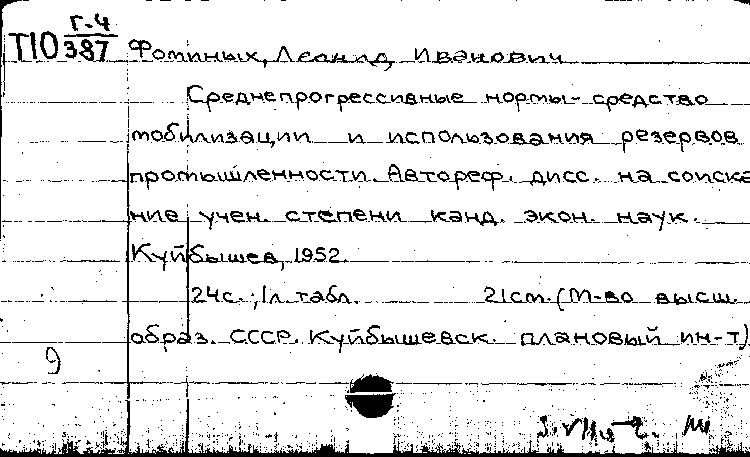 Г-4
Т10 387 Фоминых, Леонид Иванович
Среднепрогрессивные нормы - средство
мобилизации и использования резервов
промышленности. Автореф. дисс. на соиска
ние учен. степени канд. экон. наук.
Куйбышев, 1952.
24с.; 1л. табл. 21см. (М-во высш.
образ. СССР. Куйбышевск. плановый ин-т)
9